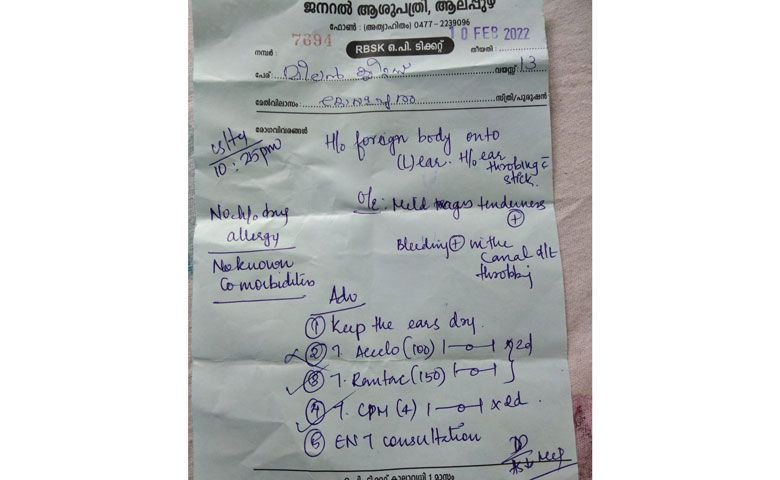 ജനറൽ ആശുപത്രി, ആലപ്പുഴ
ഫോൺ : (അത്യാഹിതം) 0477 - 2239096
നമ്പർ : 7694
RBSK ഒ.പി. ടിക്കറ്റ്
തീയതി : 10 FEB 2022
പേര് വയസ്സ് 13
മേൽവിലാസം സ്ത്രീ/പുരുഷൻ
രോഗവിവരങ്ങൾ
10:25pm
H/o foreign body onto
(L) ear. H/o ear
throbing c̄
stick.
O/E: Mild tragus tenderness
+
No h/o drug
allergy
No known
Comorbidities
Bleeding + in the
canal d/t
throbbing
Adv
① Keep the ears dry.
② T. Aceclo (100) 1—o—1 x 2d
③ T. Rantac (150) 1—o—1
④ T. CPM (4) 1—o—1 x 2d.
⑤ ENT consultation
ഒ.പി. ടിക്കറ്റ് കാലാവധി 1 മാസം